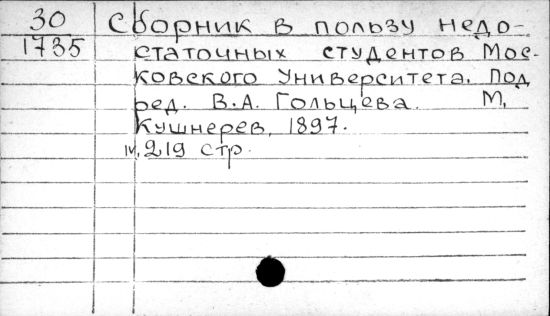 30 Сборник в пользу недо-
1735 статочных студентов Мос-
ковского Университета. Под
ред. В.А. Гольцева. М,
Кушнерев, 1897.
IV, 219 стр.